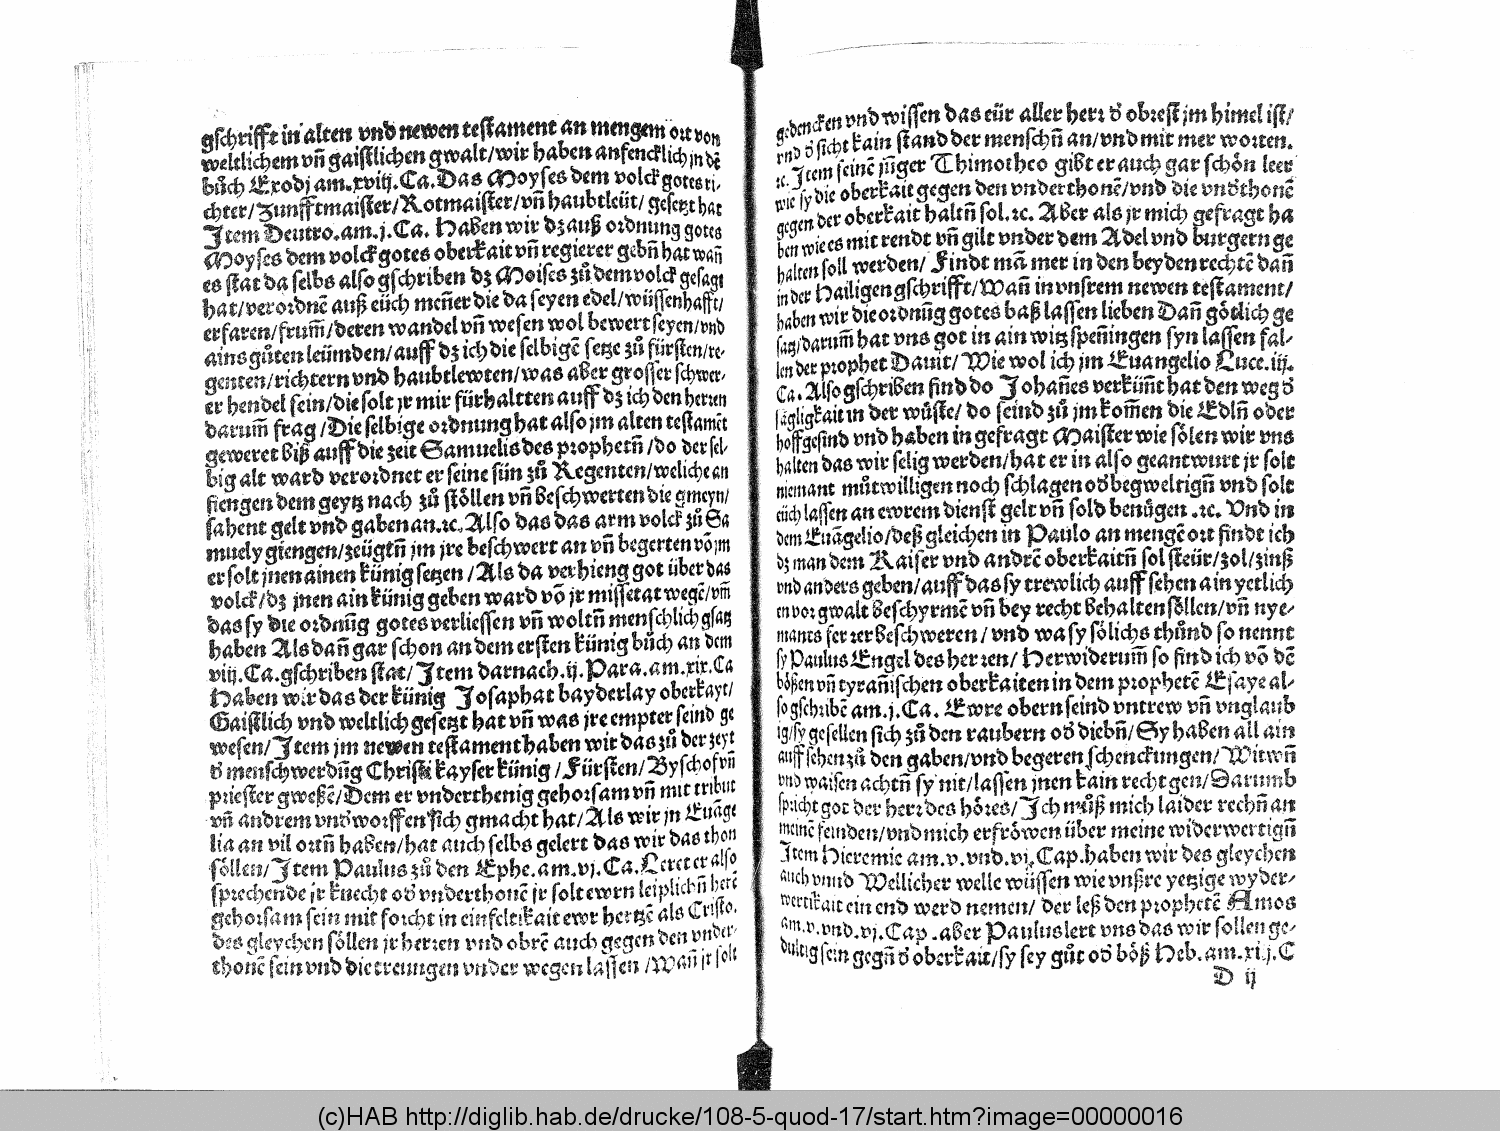 gschrifft in alten vnd newen testament an mengem ort von
weltlichem vñ gaistlichen gwalt/wir haben anfencklich jn dẽ
bůch Exodj am.xviij.Ca.Das Moyses dem volck gotes ri-
chter/Zunfftmaister/Rotmaister/vñ haubtleüt/gesetzt hat
Item Deutro.am.j.Ca. Haben wir dz auß ordnung gotes
Moyses dem volck gotes oberkait vñ regierer gebñ hat wañ
es stat da selbs also gschriben dz Moises zů dem volck gesagt
hat/verordnẽ auß eüch meñer die da seyen edel/wüssenhafft/
erfaren/frum̃/deren wandel vñ wesen wol bewert seyen/vnd
ains gůten leümden/auff dz ich die selbigẽ setze zů fürsten/re-
genten/richtern vnd haubtlewten/was aber grosser schwer-
er hendel sein/die solt jr mir fürhaltten auff dz ich den herren
darum̃ frag/Die selbige ordnung hat also jm alten testamẽt
geweret biß auff die zeit Samuelis des prophetñ/do der sel-
big alt ward verordnet er seine sün zů Regenten/weliche an
fiengen dem geytz nach zů stöllen vñ beschwerten die gmeyn/
sahent gelt vnd gaben an.ꝛc.Also das das arm volck zů Sa
muely giengen/zeügtñ jm jre beschwert an vñ begerten võ jm
er solt jnen ainen künig setzen/Als da verhieng got über das
volck/dz jnen ain künig geben ward võ jr missetat wegẽ/vm̃
das sy die ordnũg gotes verliessen vñ woltñ menschlich gsatz
haben Als dañ gar schon an dem ersten künig bůch an dem
viij.Ca.gschriben stat/Item darnach.ij.Para.am.xix.Ca
Haben wir das der künig Josaphat bayderlay oberkayt/
Gaistlich vnd weltlich gesetzt hat vñ was jre empter seind ge
wesen/Item jm newen testament haben wir das zů der zeyt
ď menschwerdũg Christi kayser künig/Fürsten/Byschof vñ
priester gweßẽ/Dem er vnderthenig gehorsam vñ mit tribut
vñ andrem vnďworffen sich gmacht hat/Als wir jn Euãge
lia an vil ortñ haben/hat auch selbs gelert das wir das thon
söllen/Item Paulus zů den Ephe.am.vj.Ca.Leret er also
sprechende jr knecht oď vnderthonẽ jr solt ewrn leiplichñ herẽ
gehorsam sein mit forcht in einfeltikait ewr hertzẽ als Cristo.
des gleychen söllen jr herren vnd obrẽ auch gegen den vnder-
thonẽ sein vnd die treungen vnder wegen lassen/Wañ jr solt
gedencken vnd wissen das eür aller herr ď obrest jm himel ist/
vnd ď sicht kain stand der menschñ an/vnd mit mer worten.
ꝛc. Item seinẽ jũger Thimotheo gibt er auch gar schön leer
wie sy die oberkait gegen den vnderthonẽ/vnd die vnďthonẽ
gegen der oberkait haltñ sol.ꝛc. Aber als jr mich gefragt ha
ben wie es mit rendt vñ gilt vnder dem Adel vnd burgern ge
halten soll werden/ Findt mã mer in den beyden rechtẽ dañ
in der Hailigen gschrifft/Wañ in vnsrem newen testament/
haben wir die ordnũg gotes baß lassen lieben Dañ götlich ge
satz/darum̃ hat vns got in ain witz speñingen syn lassen fal-
len der prophet Dauit/ Wie wol ich jm Euangelio Luce.iij.
Ca. Also gschriben find do Johañes verküñt hat den weg ď
säligkait in der wůste/ do seind zů jm kom̃en die Edlñ oder
hoffgesind vnd haben in gefragt Maister wie sölen wir vns
halten das wir selig werden/hat er in also geantwurt jr solt
niemant můtwilligen noch schlagen oď begweltigñ vnd solt
eüch lassen an ewrem dienst gelt vñ sold benügen.ꝛc. Vnd in
dem Euãgelio/deß gleichen in Paulo an mengẽ ort findt ich
dz man dem Kaiser vnd andrẽ oberkaitñ sol steür/zol/zinß
vnd anders geben/auff das sy trewlich auff sehen ain yetlich
en vor gwalt beschyrmẽ vñ bey recht behalten söllen/vñ nye-
mants ferrer beschweren/ vnd wa sy sölichs thůnd so nennt
sy Paulus Engel des herren/ Herwiderum̃ so find ich võ dẽ
bößen vñ tyrañischen oberkaiten in dem prophetẽ Esaye al-
so gschribẽ am.j.Ca. Ewre obern seind vntrew vñ vnglaub
ig/sy gesellen sich zů den raubern oď diebñ/Sy haben all ain
auff sehen zů den gaben/vnd begeren schenckungen/Witwñ
vnd waisen achtñ sy nit/lassen jnen kain recht gen/Darumb
spricht got der herr des höres/Ich můß mich laider rechñ an
meinẽ feinden/vnd mich erfröwen über meine widerwertigñ
Item Hieremie am.v.vnd.vj.Cap.haben wir des gleychen
auch vnnd Wellicher welle wüssen wie vnßre yetzige wyder-
wertikait ein end werd nemen/ der leß den prophetẽ Amos
am.v.vnd.vj.Cap.aber Paulus lert vns das wir sollen ge-
dultig sein gegñ ď oberkait/sy sey gůt oď böß Heb.am.xij.C
D ij
(c)HAB http://diglib.hab.de/drucke/108-5-quod-17/start.htm?image=00000016